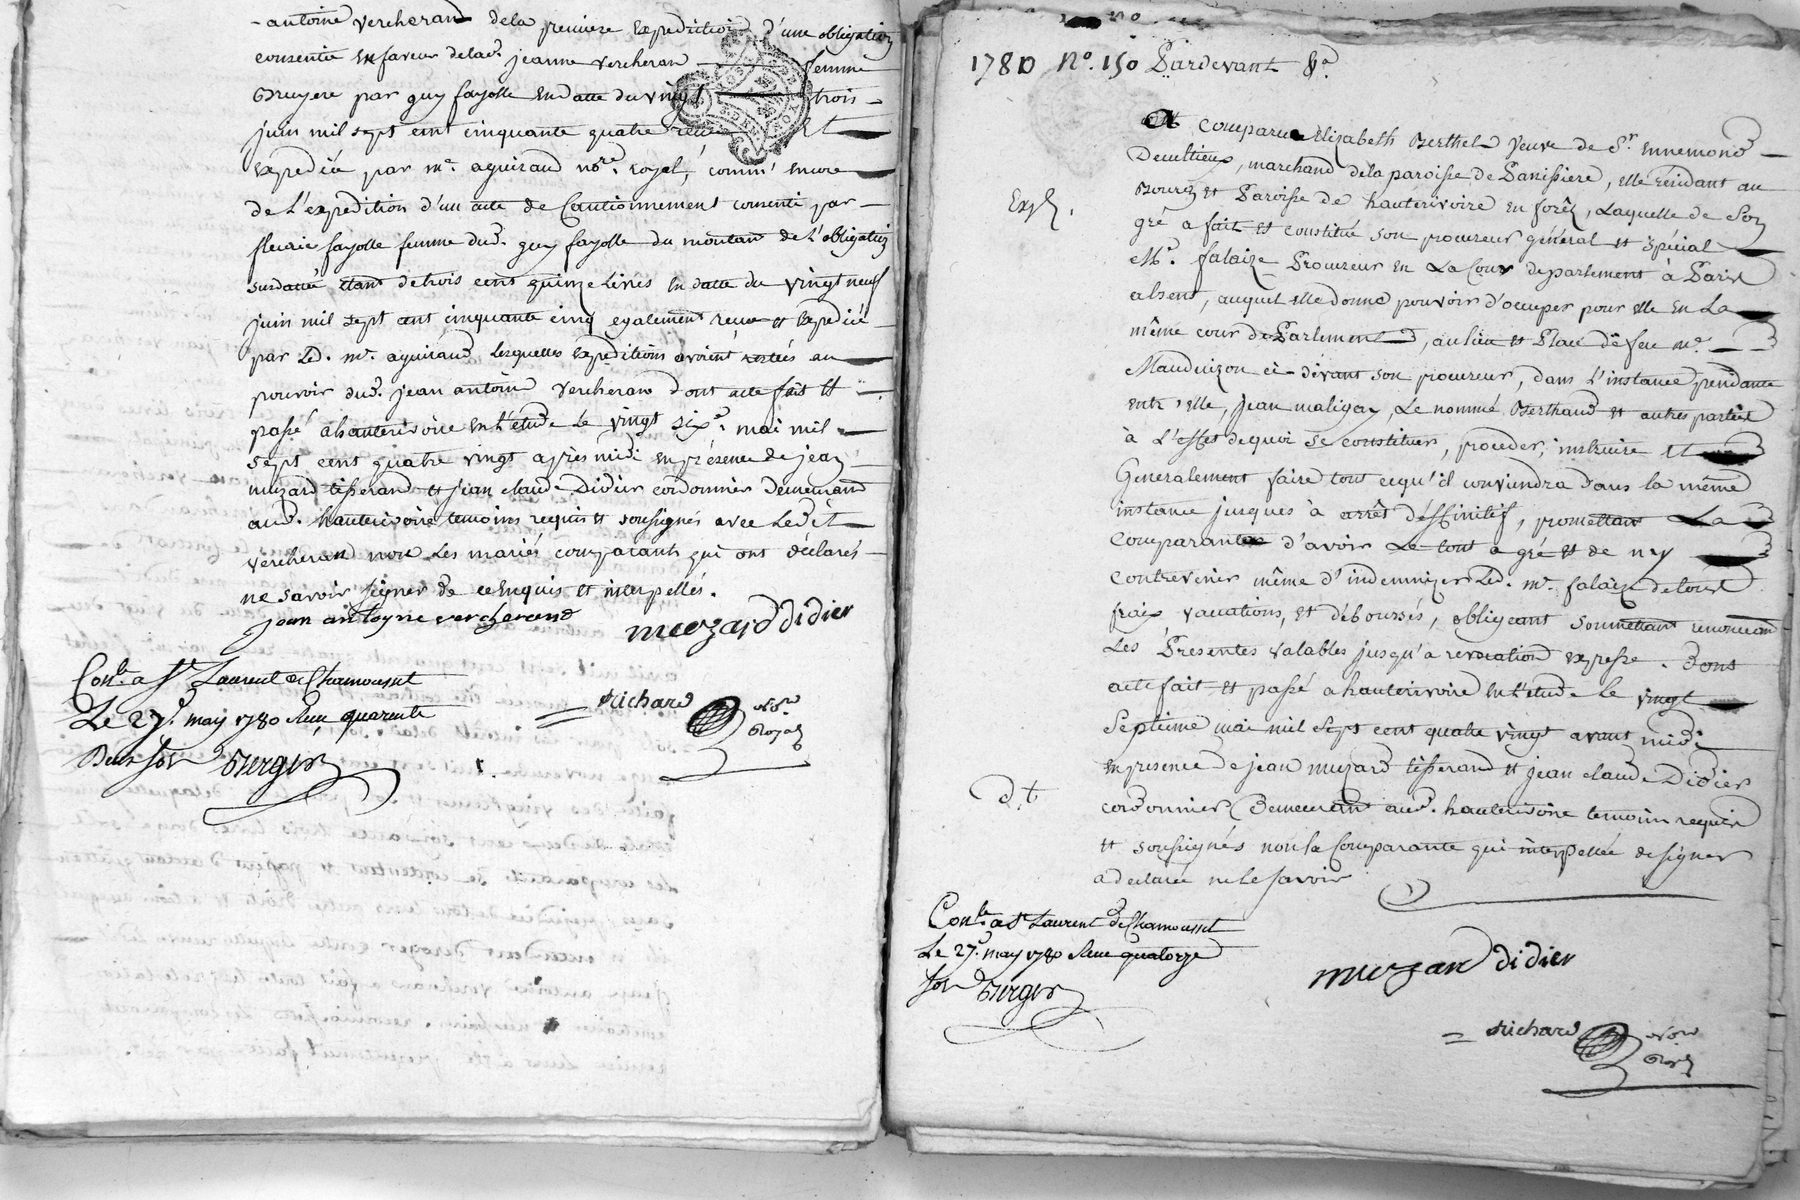 antoine vercherand dela premiere expedition d'une obligation
consentie en faveur delad. jeanne vercheran femme
Bruyere par guy fayolle en datte du vingt trois
juin mil sept cent cinquante quatre reçue Et
expediée par me. aguiraud nore. royal, comm' encore
de L'expedition d'un acte de Cautionnement consenti par
fleurie fayolle femme dud. guy fayolle du montant de L'obligation
susdattée étant de trois cent quinze Livres en datte du vingt neuf
juin mil sept cent cinquante cinq egalement reçue et Expediée
par Led. me. aguiraud Lesquelles expeditions avoient restées au
pouvoir dud. jean antoine vercheran dont acte fait Et
passé a hauterivoire en L'étude Le vingt sixe. mai mil
sept cent quatre vingt apres midi en présence de jean
muzard tisserand et jean claude Didier cordonnier demeurant
aud. hauterivoire temoins requis et sousignés avec Ledit
vercherand non Les mariés comparants qui ont déclarés
ne savoir signer de ce enquis et interpellés.
jean antoyne vercherand muzard didier
Conlé a St Laurent de Chamousset
Le 27e. may 1780 Reçu quarente
Deux sols Berger
Richard nore royal
1780 No. 150 Pardevant &a.
A comparue Elizabeth Berthet veuve de Sr. Ennemond
Decultieux, marchand dela paroisse de Panissiere, elle résidant au
Bourg et Paroisse de hauterivoire en forêz, Laquelle de Son
gré a fait et constitué son procureur général et spécial
Me. falaize Procureur en La Cour de parlement à Paris
absent, auquel elle donne pouvoir d'occuper pour elle en La
même cour de Parlement, au lieu et Place de feu me.
Mauduizon ci-devant son procureur, dans L'instance pendante
entr'elle, jean maligay, Le nommé Berthaud et autres parties
à L'effet dequoi se constituer, proceder, instruire et
Expé.
Generalement faire tout cequ'il conviendra dans la même
instance jusques à arrêt déffinitif, promettant La
Comparante d'avoir Le tout a gré et de n'y
contrevenir même d'indemnizer Led. me. falaize de tous
fraix vacations, et déboursés, obligeant soumettant renonceant
Les Présentes valables jusqu'a revocation expresse. Dont
acte fait et passé a hauterivoire en L'etude Le vingt
Septieme mai mil Sept cent quatre vingt avant midi
en presence de jean muzard tisserand et jean claude Didier
cordonnier Demeurant aud. hauterivoire temoins requis
et sousignés non la Comparante qui interpellée de signer
a declarée ne Le savoir
d.t
Conlé a St Laurent de Chamousset
Le 27e. may 1780 Reçu quatorze
sols Berger
muzard didier
Richard nore royal